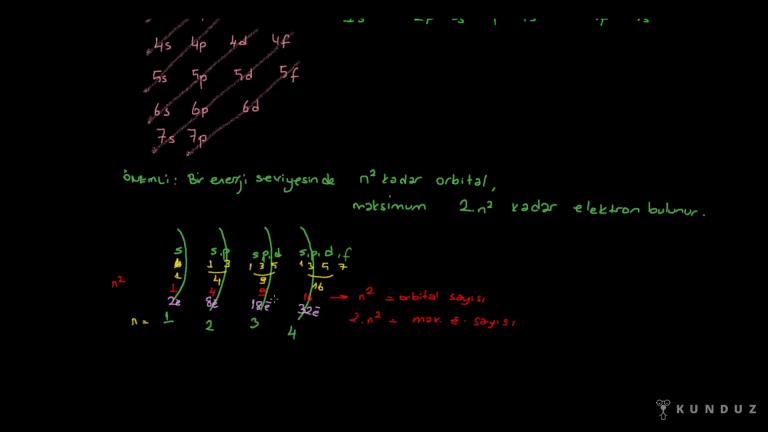 4s 4p 4d 4f
5s 5p 5d 5f
6s 6p 6d
7s 7p
ÖNEMLİ: Bir enerji seviyesinde n² kadar orbital,
maksimum 2.n² kadar elektron bulunur.
s s,p s,p,d s,p,d,f
1 3 1 3 5 1 3 5 7
1 4 9 16
n² 1 4 9 16 → n² = orbital sayısı
2e⁻ 8e⁻ 18e⁻ 32e⁻ 2.n² = max. e⁻ sayısı
n = 1 2 3 4
KUNDUZ